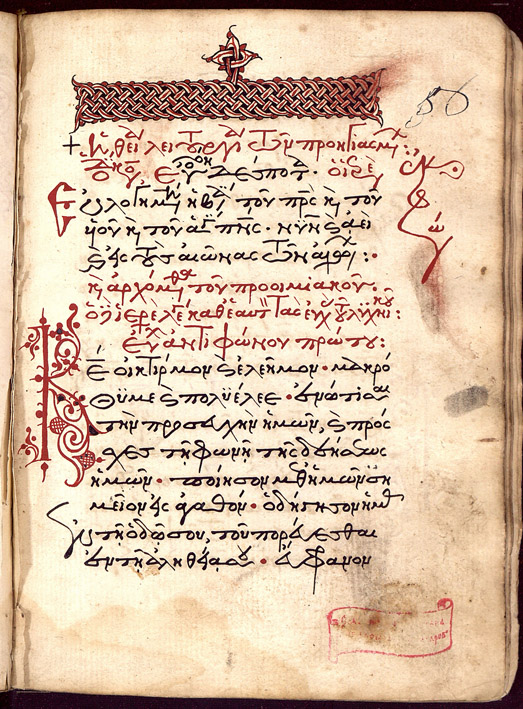 + Ἡ θεί λειτουργί τῶν προηγιασμ:
Εὐλόγησον δέσποτ. ὁ ἱερεὺ
Εὐλογημένη ἡ β τοῦ πρς κ τοῦ
υἱοῦ κ τοῦ ἁγ πνς· νῦν κ ἀεὶ
κ εἰς τοὺς αἰῶνας τῶν αἰώ:
κ ἀρχόμεθα τοῦ προοιμιακοῦ.
ὁ ἱερεὺ λέγ καθεαυτ τὰς εὐχ τοῦ λυχνικοῦ:
Εὐχ ἀντιφώνου πρώτου:
Κε οἰκτίρμον κ ἐλεῆμον· μακρό
θυμε κ πολυέλεε· ἐνώτισαι
τὴν προσευχὴν ἡμῶν, κ πρόσ
χες τῇ φωνῇ τῆς δεήσεως
ἡμῶν· ποίησον μεθ ἡμῶν ση
μεῖον εἰς ἀγαθόν· ὁδήγησον ἡμᾶς
ἐν τῇ ὁδῷ σου, τοῦ πορεύεσθαι
ἐν τῇ ἀληθείᾳ σου· εὔφρανον